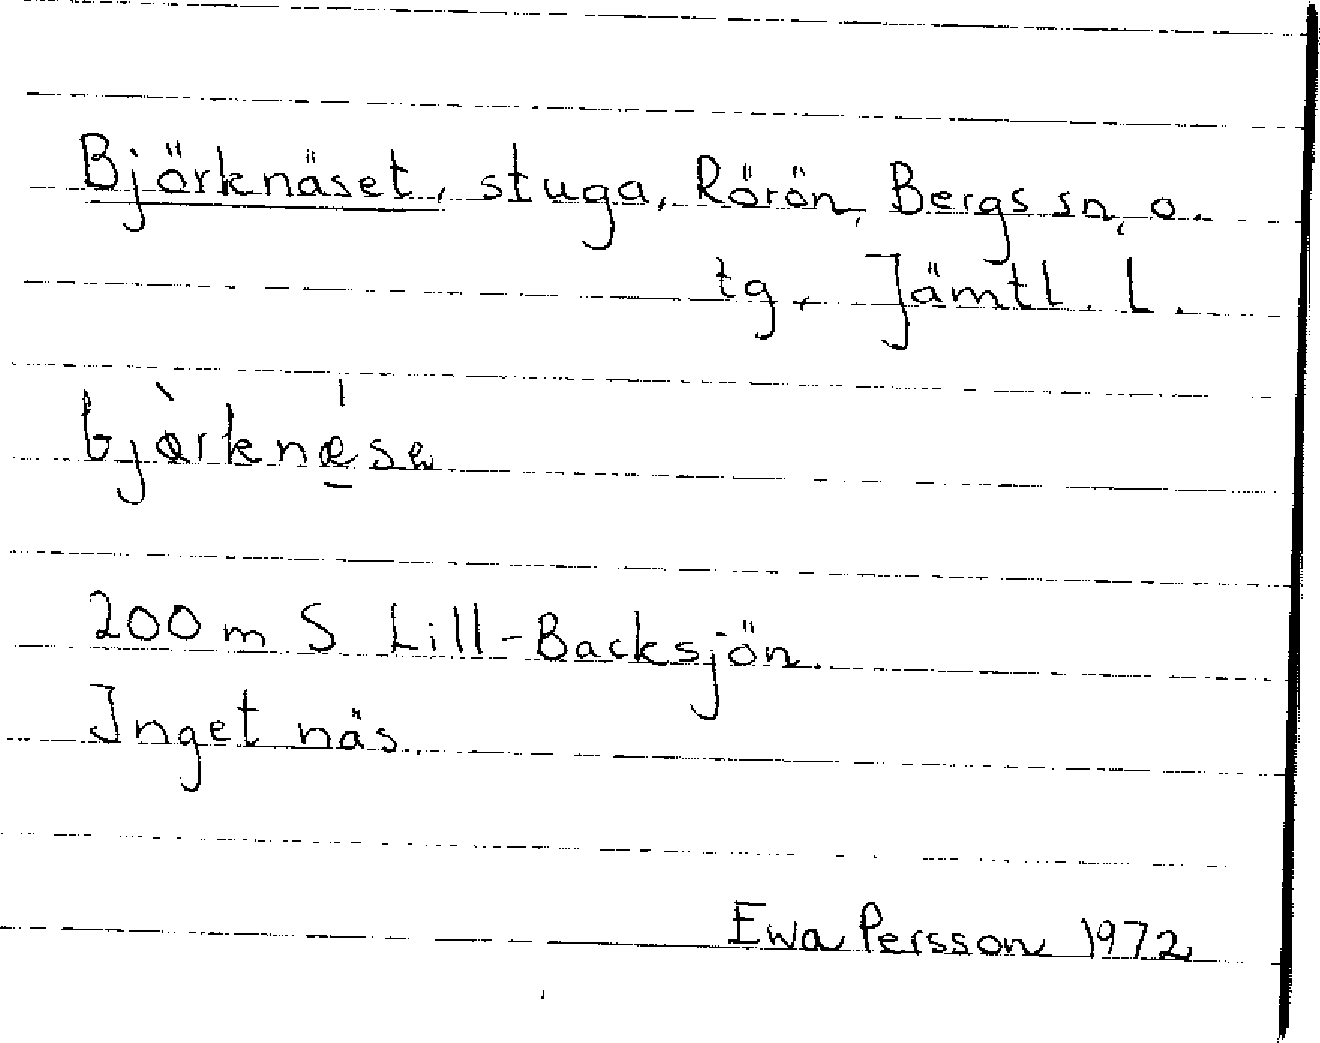 Björknäset, stuga, Rörön, Bergs sn, o.
tg. Jämtl. l.
200 m S Lill-Backsjön.
Inget näs.
Ewa Persson 1972